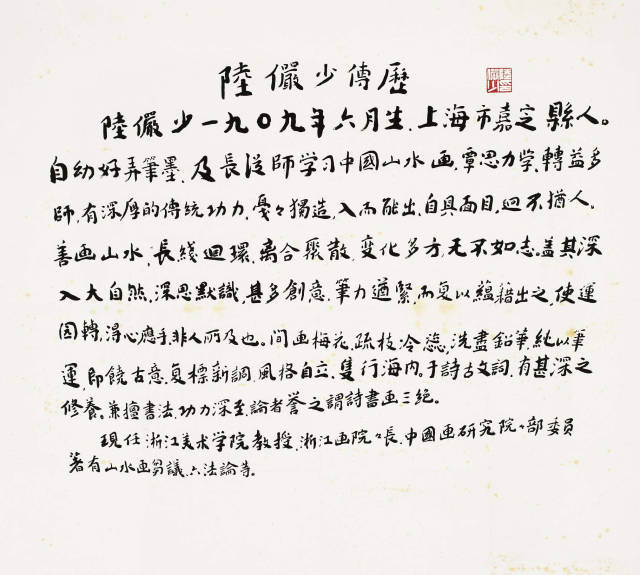 陸儼少傳歷
陸儼少一九〇九年六月生.上海市嘉定縣人。
自幼好弄筆墨.及長從師学习中國山水画.覃思力学.轉益多
師.有深厚的傳统功力.戞々獨造.入而能出.自具面目.迥不猶人.
善画山水.長綫迴環.离合聚散.变化多方.无不如志.盖其深
入大自然.深思默識.甚多創意.筆力遒緊.而复以蘊藉出之.使運
囩轉.得心應手.非人所及也。间画梅花.疏枝冷蕊.洗盡鉛華.純以筆
運.即饒古意.复標新調.風格自立.隻行海内.于詩古文詞.有甚深之
修养.兼擅書法.功力深至.論者誉之謂詩書画三絕。
現任浙江美术学院教授.浙江画院々長.中國画研究院々部委員
著有山水画芻議.六法論等。